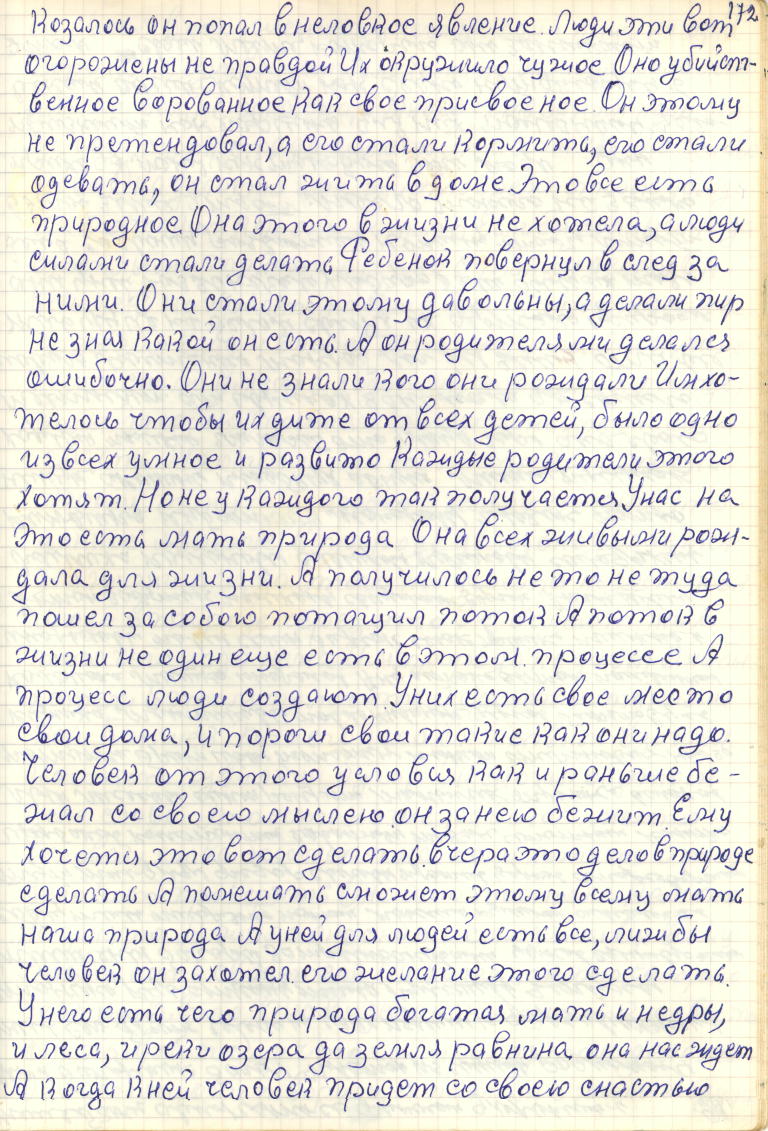 172
Козалось он попал в неловкое явление. Люди эти вот
огорожены не правдой Их окружило чужое Оно убийст-
венное ворованное как свое присвоеное. Он этому
не претендовал, а его стали кормить, его стали
одевать, он стал жить в доме. Это все есть
природное. Она этого в жизни не хотела, а люди
силами стали делать. Ребенок повернул в след за
ними. Они стали этому давольны, а делали пир
не зная какой он есть. А он родителями делался
ошибочно. Они не знали кого они рождали Им хо-
телось чтобы их дите от всех детей, было одно
из всех умное и развито Каждые родители этого
хотят. Но не у каждого так получается У нас на
это есть мать природа Она всех живыми рож-
дала для жизни. А получилось не то не туда
пошел за собою потащил поток А поток в
жизни не один еще есть в этом процессе А
процесс люди создают. У них есть свое место
свои дома, и пороги свои такие как они надо.
Человек от этого условия как и раньше бе-
жал со своею мыслею он за нею бежит. Ему
хочется это вот сделать. вчера это дело в природе
сделать А помешать сможет этому всему мать
наша природа А у ней для людей есть все, лиж бы
человек он захотел его желание этого сделать.
У него есть чего природа богатая мать и недры,
и леса, и реки озера да земля равнина она нас ждет
А когда к ней человек придет со своею снастью